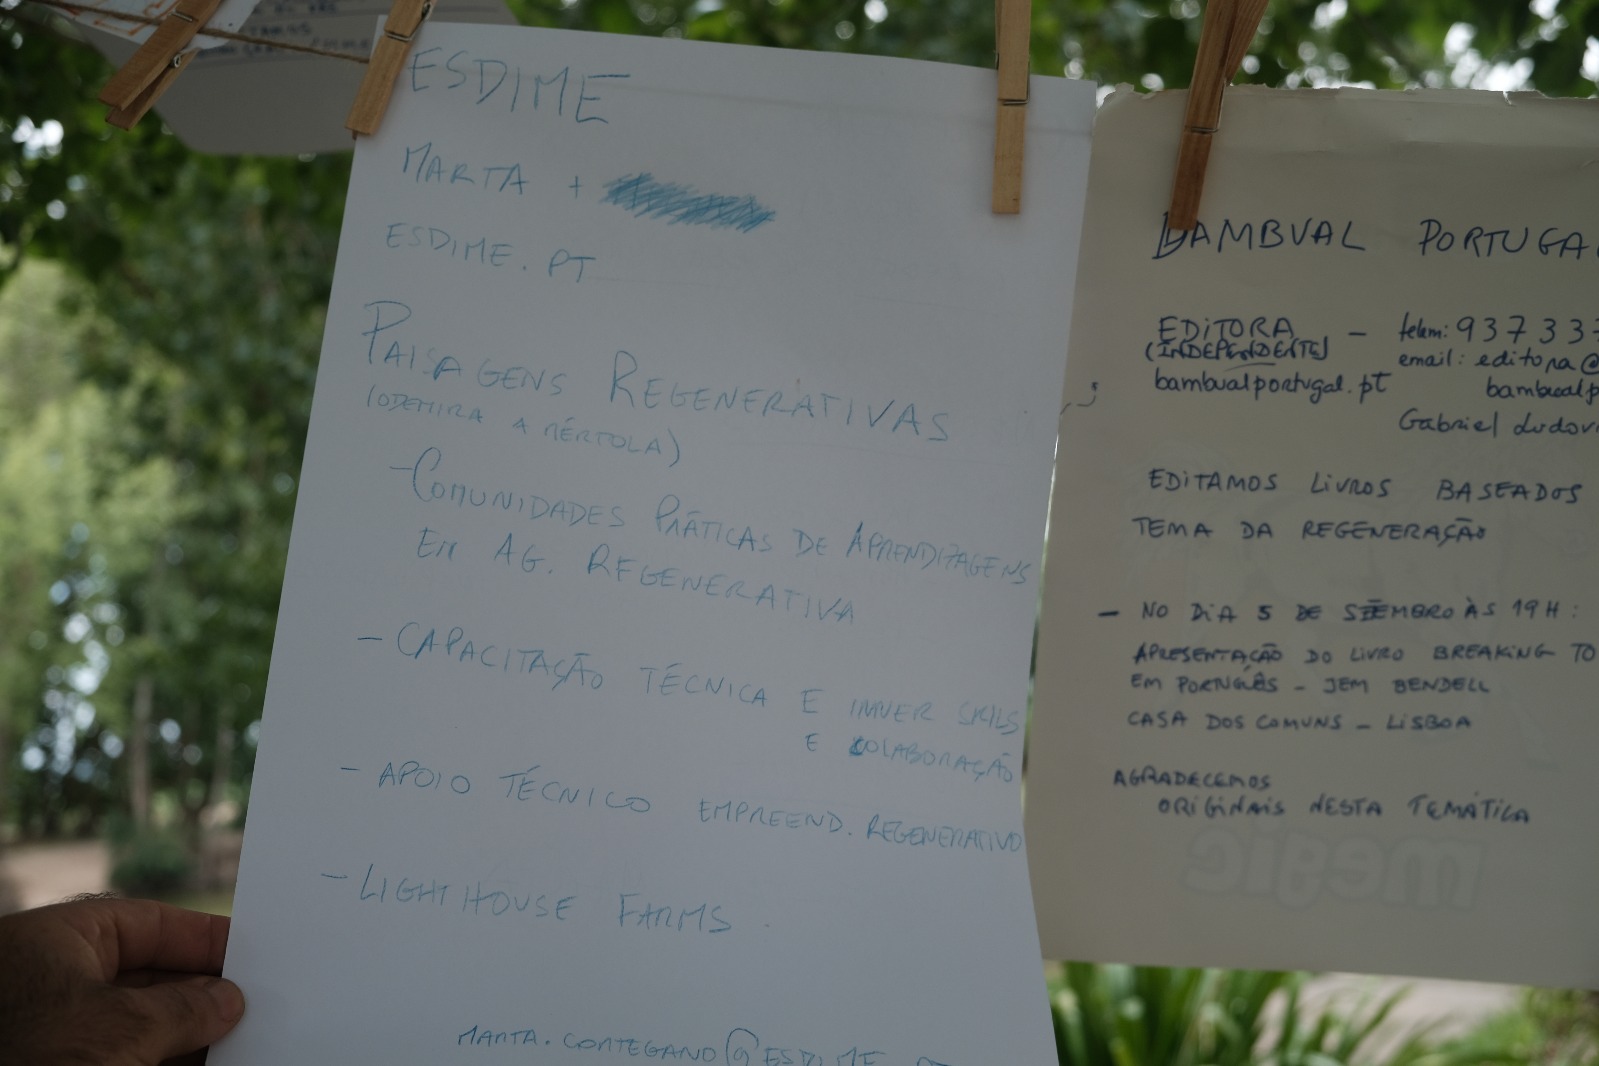 ESDIME
MARTA +
ESDIME.PT
PAISAGENS REGENERATIVAS
(ODEMIRA A MÉRTOLA)
- COMUNIDADES PRÁTICAS DE APRENDIZAGENS
EM AG. REGENERATIVA
- CAPACITAÇÃO TÉCNICA E INNER SKILS
E COLABORAÇÃO
- APOIO TÉCNICO EMPREEND. REGENERATIVO
- LIGHTHOUSE FARMS
MARTA.CORTEGANO@ESDIME
BAMBUAL PORTUGAL
EDITORA - telem: 937 33
(INDEPENDENTE) email: editora@
bambualportugal.pt bambualp
Gabriel Ludov
EDITAMOS LIVROS BASEADOS
TEMA DA REGENERAÇÃO
- NO DIA 5 DE SETEMBRO ÀS 19H:
APRESENTAÇÃO DO LIVRO BREAKING TO
EM PORTUGUÊS - JEM BENDELL
CASA DOS COMUNS - LISBOA
AGRADECEMOS
ORIGINAIS NESTA TEMÁTICA